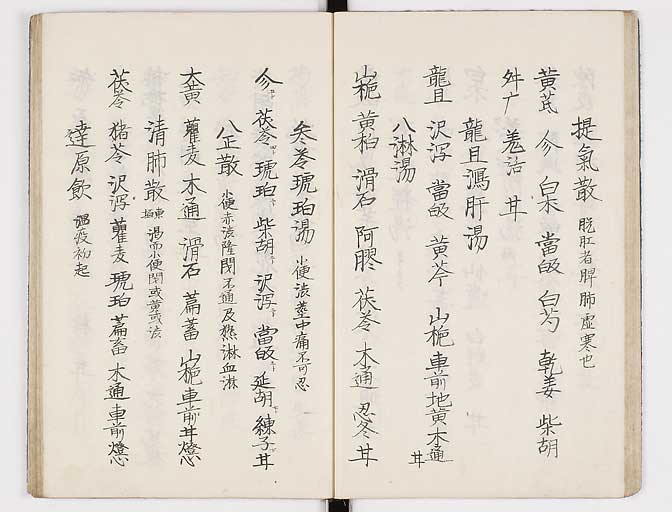 提氣散 脱肛者脾肺虚寒也
黄芪 參 白朮 當皈 白芍 乾姜 柴胡
舛广 羌活 井
龍且瀉肝湯
龍且 沢泻 當皈 黄芩 山梔 車前 地黄 木通 井
八淋湯
山梔 黄柏 滑石 阿膠 茯苓 木通 忍冬 井
参苓琥珀湯 小便渋莖中痛不可忍
參 茯苓 琥珀 柴胡 沢泻 當皈 延胡 練子 井
八正散 小便赤渋隆閉不通及熱淋血淋
大黄 瞿麦 木通 滑石 萹蓄 山梔 車前 井 燈心
清肺散 東垣 渇而小便閉或黄或渋
茯苓 猪苓 沢泻 瞿麦 琥珀 萹蓄 木通 車前 燈心
達原飲 温疫初起